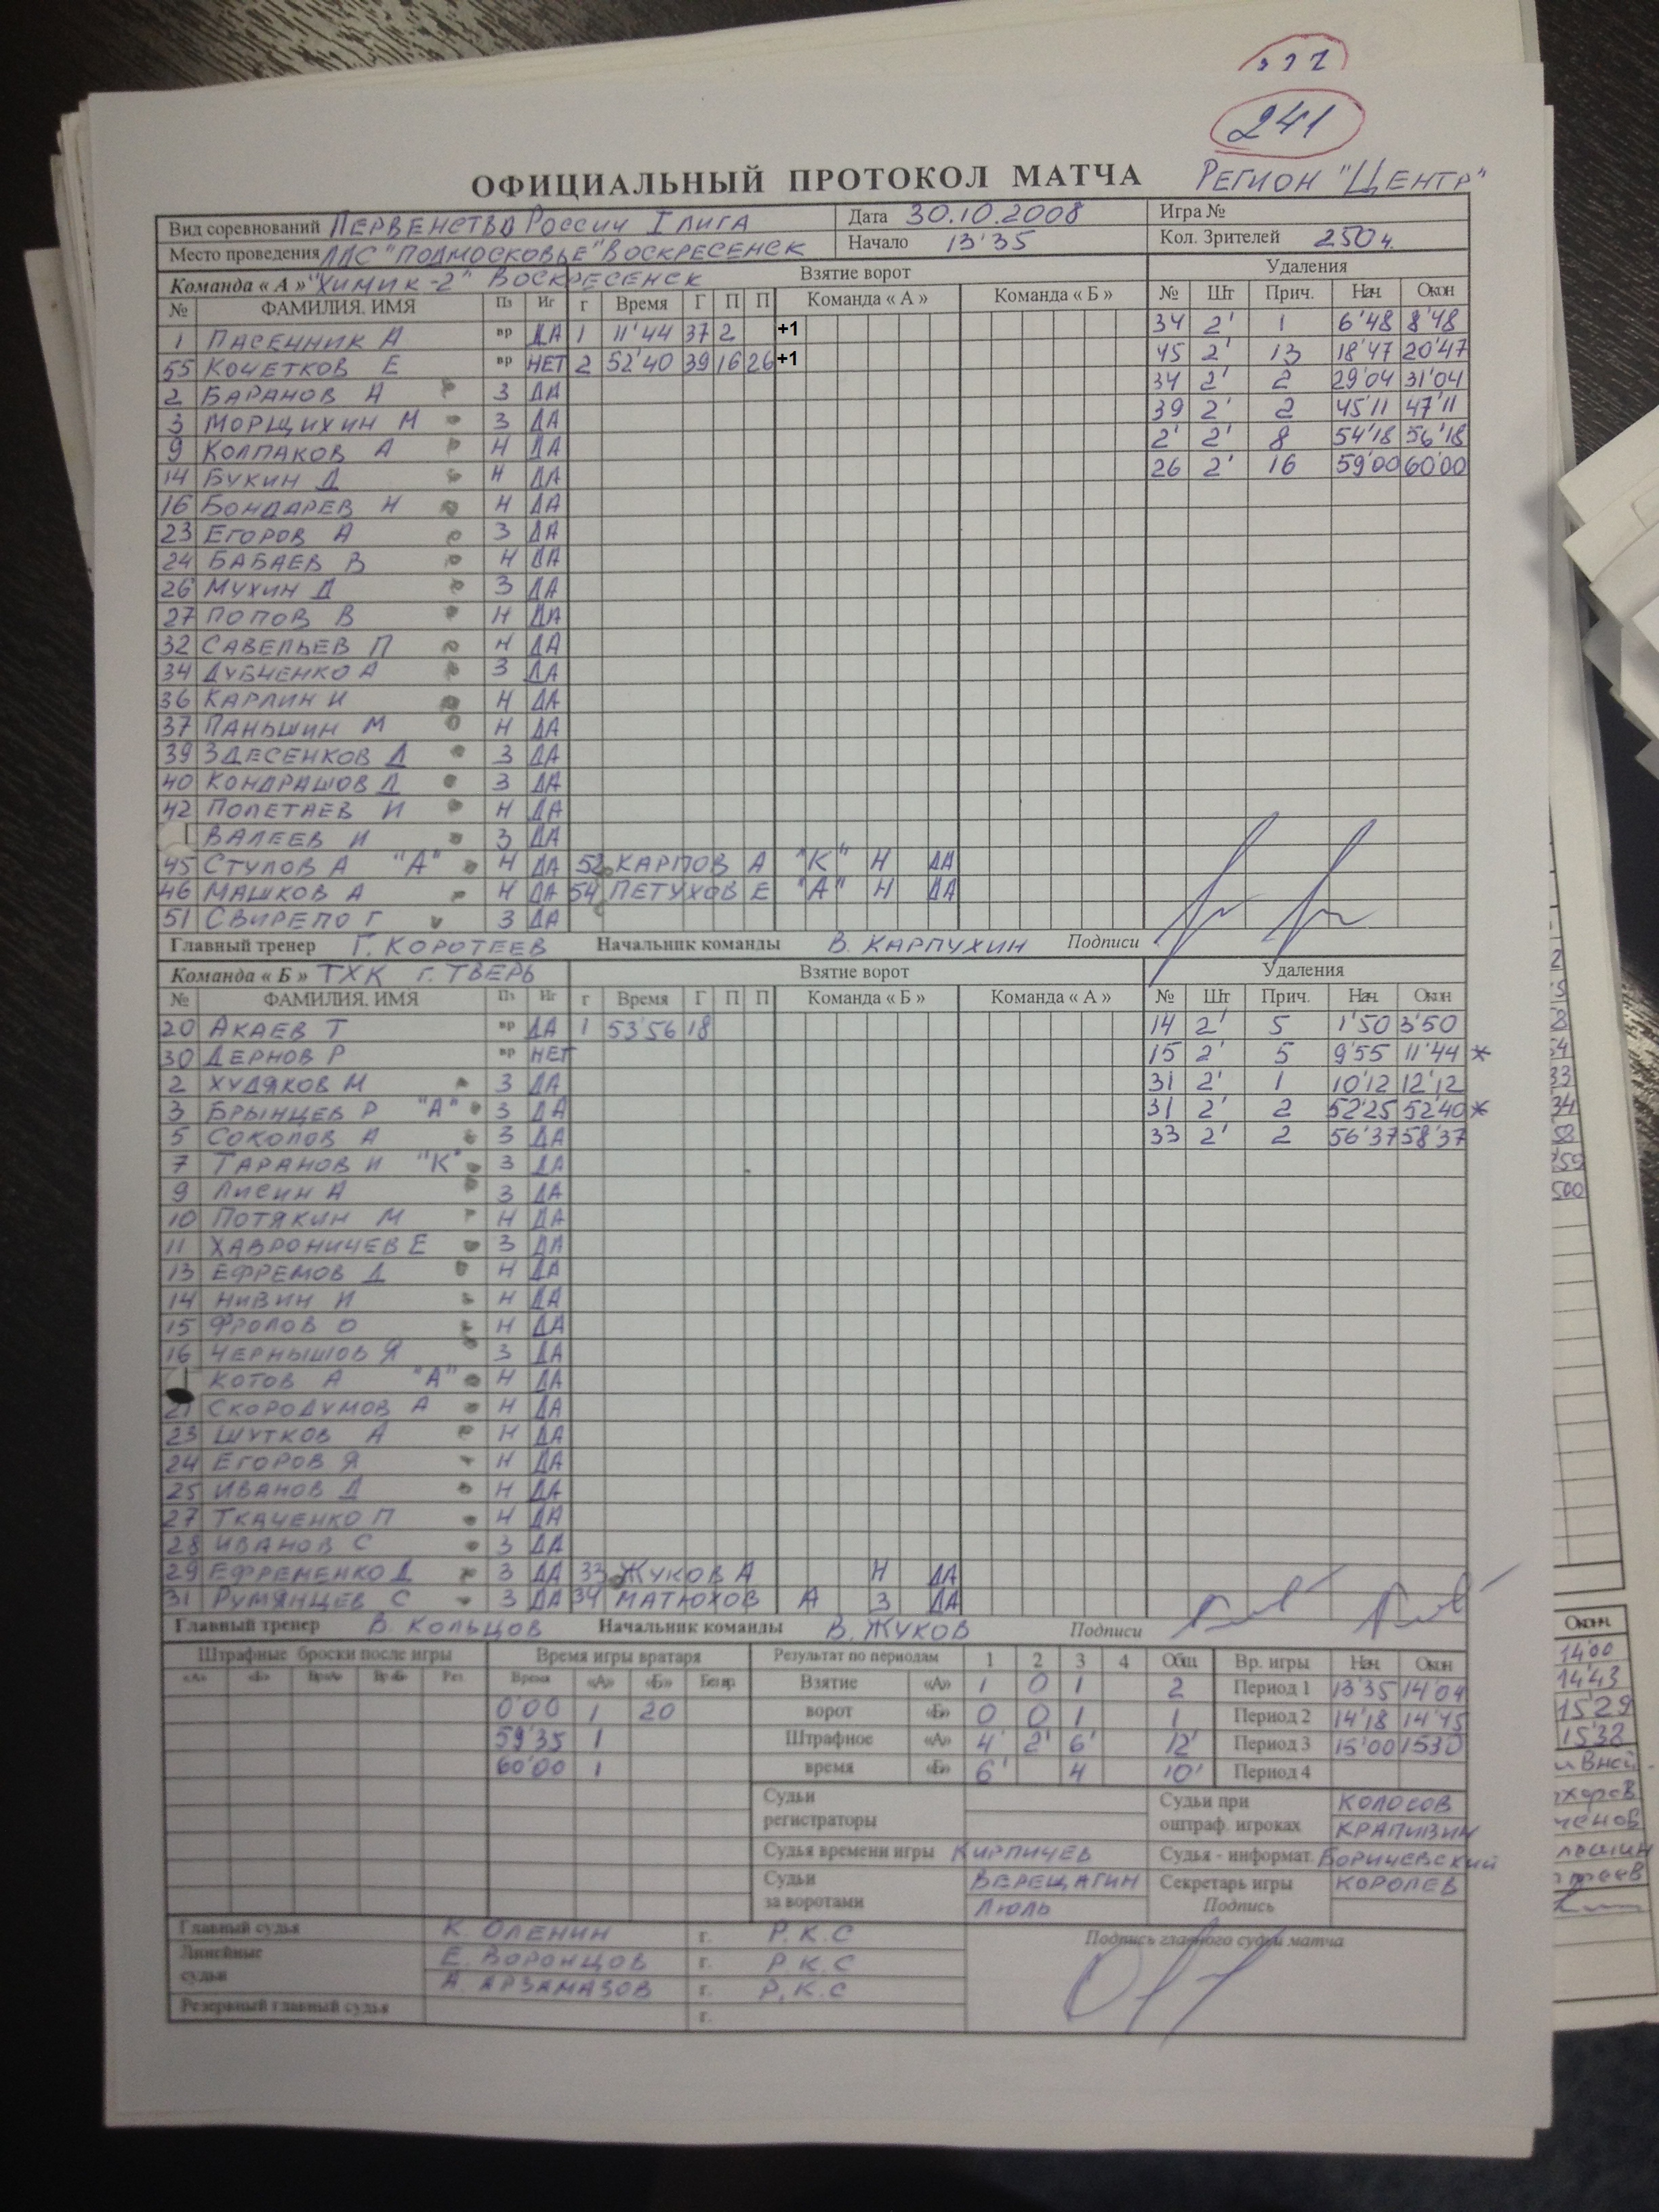 241
ОФИЦИАЛЬНЫЙ ПРОТОКОЛ МАТЧА РЕГИОН "ЦЕНТР"
Вид соревнований ПЕРВЕНСТВО РОССИИ I ЛИГА Дата 30.10.2008 Игра №
Место проведения ЛДС "ПОДМОСКОВЬЕ" ВОСКРЕСЕНСК Начало 13'35 Кол. Зрителей 250 ч.
Команда « А » "ХИМИК-2" ВОСКРЕСЕНСК Взятие ворот Удаления
№ ФАМИЛИЯ, ИМЯ Пз Иг г Время Г П П Команда « А » Команда « Б » № Шт Прич. Нач. Окон
1 ПАСЕЧНИК А вр ДА 1 11'44 37 2 +1 34 2' 1 6'48 8'48
55 КОЧЕТКОВ Е вр НЕТ 2 52'40 39 16 26 +1 45 2' 13 18'47 20'47
2 БАРАНОВ А З ДА 34 2' 2 29'04 31'04
3 МОРЩИХИН М З ДА 39 2' 2 45'11 47'11
9 КОЛПАКОВ А Н ДА 2' 2' 8 54'18 56'18
14 БУКИН Д Н ДА 26 2' 16 59'00 60'00
16 БОНДАРЕВ Н Н ДА
23 ЕГОРОВ А З ДА
24 БАБАЕВ В Н ДА
26 МУХИН Д З ДА
27 ПОПОВ В Н ДА
32 САВЕЛЬЕВ П Н ДА
34 ДУБЧЕНКО А З ДА
36 КАРЛИН И Н ДА
37 ПАНЬШИН М Н ДА
39 ЗДЕСЕНКОВ Д З ДА
40 КОНДРАШОВ Д З ДА
42 ПОЛЕТАЕВ И Н ДА
ВАЛЕЕВ И З ДА
45 СТУЛОВ А "А" Н ДА 52 КАРПОВ А "К" Н ДА
46 МАШКОВ А Н ДА 54 ПЕТУХОВ Е "А" Н ДА
51 СВИРЕПО Г З ДА
Главный тренер Г. КОРОТЕЕВ Начальник команды В. КАРПУХИН Подписи
Команда « Б » ТХК г. ТВЕРЬ Взятие ворот Удаления
№ ФАМИЛИЯ, ИМЯ Пз Иг г Время Г П П Команда « Б » Команда « А » № Шт Прич. Нач. Окон
20 АКАЕВ Т вр ДА 1 53'56 18 14 2' 5 1'50 3'50
30 ДЕРНОВ Р вр НЕТ 15 2' 5 9'55 11'44 *
2 ХУДЯКОВ М З ДА 31 2' 1 10'12 12'12
3 БРЫНЦЕВ Р "А" З ДА 31 2' 2 52'25 52'40 *
5 СОКОЛОВ А З ДА 33 2' 2 56'37 58'37
7 ТАРАНОВ И "К" З ДА
9 ЛИСИН А З ДА
10 ПОТЯКИН М Н ДА
11 ХАВРОНИЧЕВ Е З ДА
13 ЕФРЕМОВ Д Н ДА
14 НИВИН И Н ДА
15 ФРОЛОВ О Н ДА
16 ЧЕРНЫШОВ Я З ДА
КОТОВ А "А" Н ДА
21 СКОРОДУМОВ А Н ДА
23 ШУТКОВ А Н ДА
24 ЕГОРОВ Я Н ДА
25 ИВАНОВ Д Н ДА
27 ТКАЧЕНКО П Н ДА
28 ИВАНОВ С З ДА
29 ЕФРЕМЕНКО Д З ДА 33 ЖУКОВ А Н ДА
31 РУМЯНЦЕВ С З ДА 34 МАТЮХОВ А З ДА
Главный тренер В. КОЛЬЦОВ Начальник команды В. ЖУКОВ Подписи
Штрафные броски после игры Время игры вратаря Результат по периодам 1 2 3 4 Общ Вр. игры Нач. Окон
«А» «Б» Вр«А» Вр«Б» Рез. Время «А» «Б» Без вр Взятие «А» 1 0 1 2 Период 1 13'35 14'04
0'00 1 20 ворот «Б» 0 0 1 1 Период 2 14'18 14'45
59'35 1 Штрафное «А» 4' 2' 6' 12' Период 3 15'00 1530
60'00 1 время «Б» 6' 4 10' Период 4
Судьи регистраторы Судьи при оштраф. игроках КОЛОСОВ
КРАПИВИН
Судья времени игры КИРПИЧЕВ Судья - информат. БОРИЧЕВСКИЙ
Судьи за воротами ВЕРЕЩАГИН Секретарь игры КОРОЛЕВ
ЛЮЛЬ Подпись
Главный судья К. ОЛЕНИН г. Р.К.С Подпись главного судьи матча
Линейные судьи Е. ВОРОНЦОВ г. Р.К.С
А. АРЗАМАЗОВ г. Р.К.С
Резервный главный судья г.
Оконч.
14'00
14'43
15'29
15'38